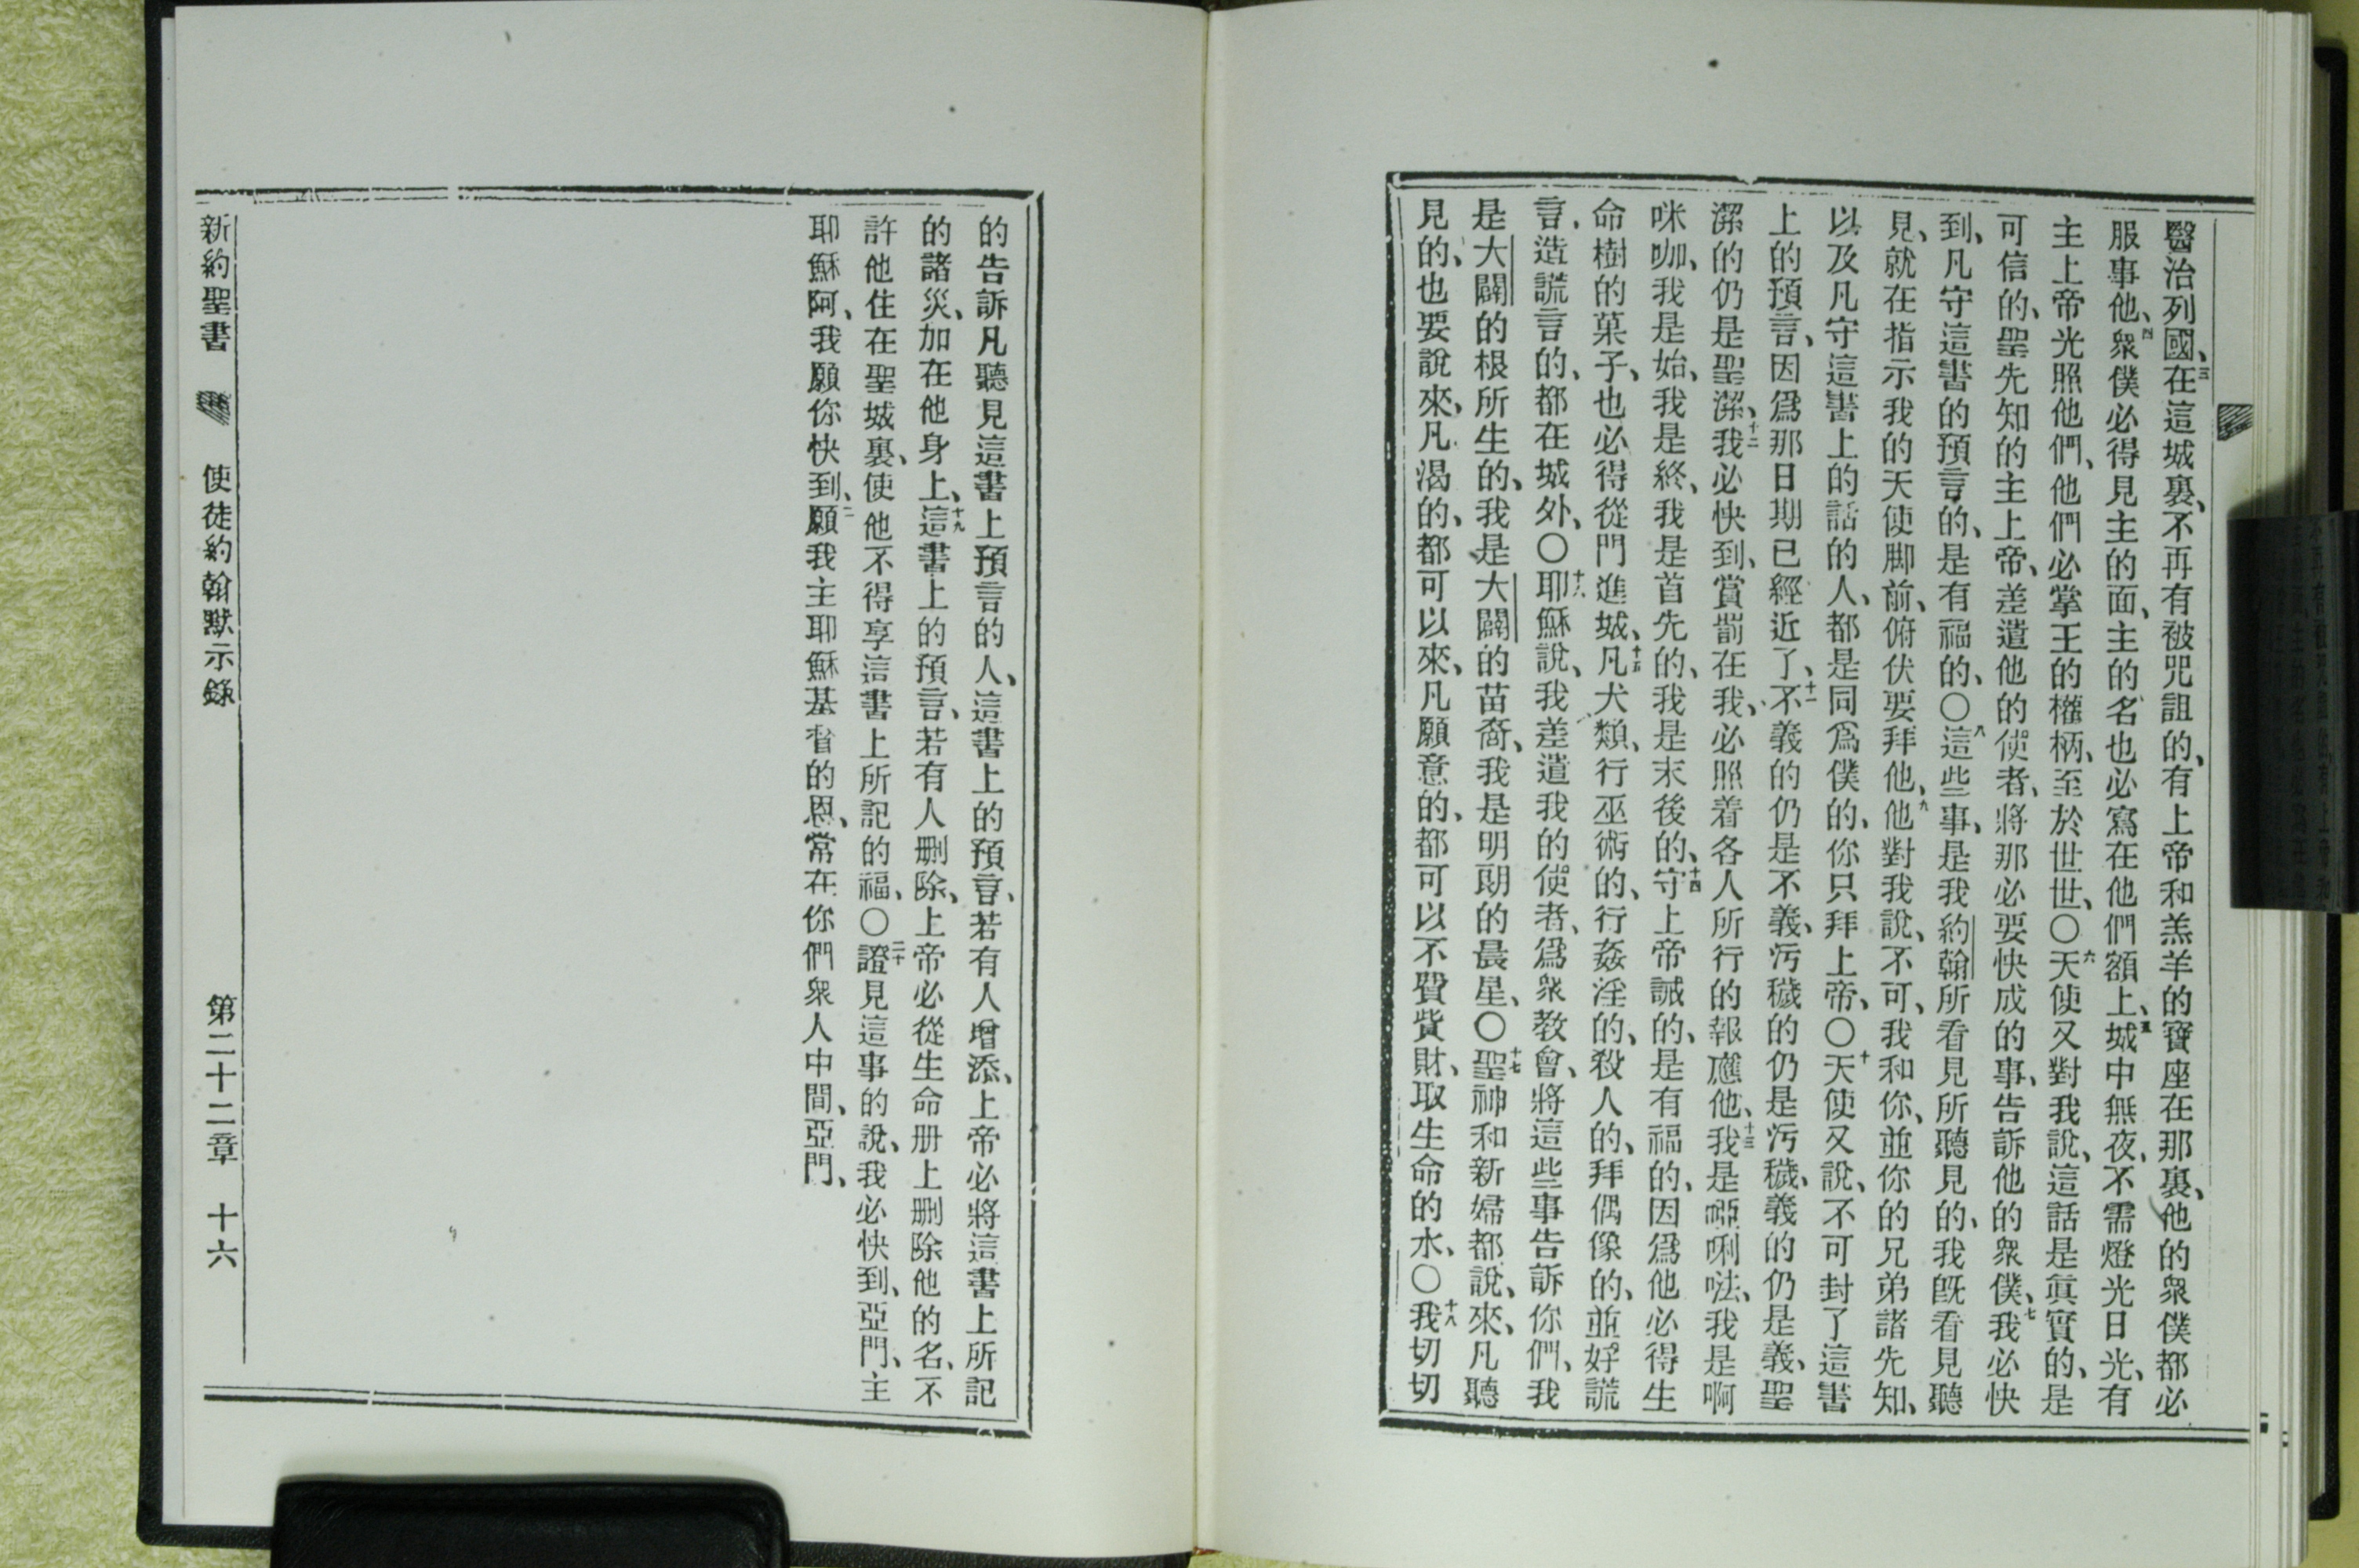 醫治列國、三在這城裏、不再有被咒詛的、有上帝和羔羊的寶座在那裏、他的衆僕都必
服事他、四衆僕必得見主的面、主的名也必寫在他們額上、五城中無夜、不需燈光日光、有
主上帝光照他們、他們必掌王的權柄、至於世世、〇六天使又對我說、這話是眞實的、是
可信的、聖先知的主上帝、差遣他的使者、將那必要快成的事、告訴他的衆僕、七我必快
到、凡守這書的預言的、是有福的、〇八這些事、是我約翰所看見所聽見的、我旣看見聽
見、就在指示我的天使脚前、俯伏要拜他、九他對我說、不可、我和你、並你的兄弟諸先知、
以及凡守這書上的話的人、都是同爲僕的、你只拜上帝、〇十天使又說、不可封了這書
上的預言、因爲那日期已經近了、十一不義的仍是不義、汚穢的仍是汚穢、義的仍是義、聖
潔的仍是聖潔、十二我必快到、賞罰在我、必照着各人所行的報應他、十三我是啞唎㗶、我是啊
咪咖、我是始、我是終、我是首先的、我是末後的、十四守上帝誡的、是有福的、因爲他必得生
命樹的菓子、也必得從門進城、十五凡犬類、行巫術的、行姦淫的、殺人的、拜偶像的、並好謊
言、造謊言的、都在城外、〇十六耶穌說、我差遣我的使者、爲衆教會、將這些事告訴你們、我
是大闢的根所生的、我是大闢的苗裔、我是明朗的晨星、〇十七聖神和新婦都說、來、凡聽
見的、也要說來、凡渴的、都可以來、凡願意的、都可以不費貲財、取生命的水、〇十八我切切
的告訴凡聽見這書上預言的人、這書上的預言、若有人增添、上帝必將這書上所記
的諸災、加在他身上、十九這書上的預言、若有人删除、上帝必從生命册上删除他的名、不
許他住在聖城裏、使他不得享這書上所記的福、〇二十證見這事的說、我必快到、亞門、主
耶穌阿、我願你快到、二一願我主耶穌基督的恩、常在你們衆人中間、亞門、
新約聖書 使徒約翰默示錄 第二十二章 十六